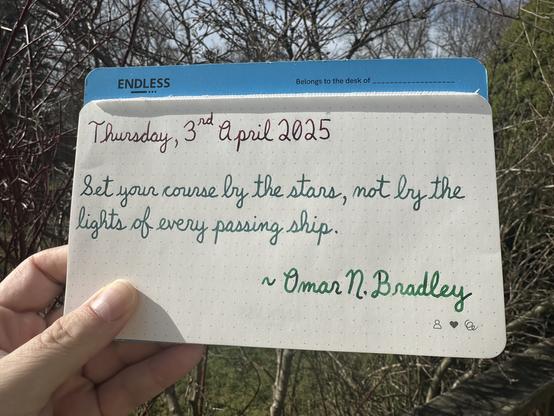 ENDLESS
Belongs to the desk of
Thursday, 3rd April 2025
Set your course by the stars, not by the
lights of every passing ship.
~ Omar N. Bradley